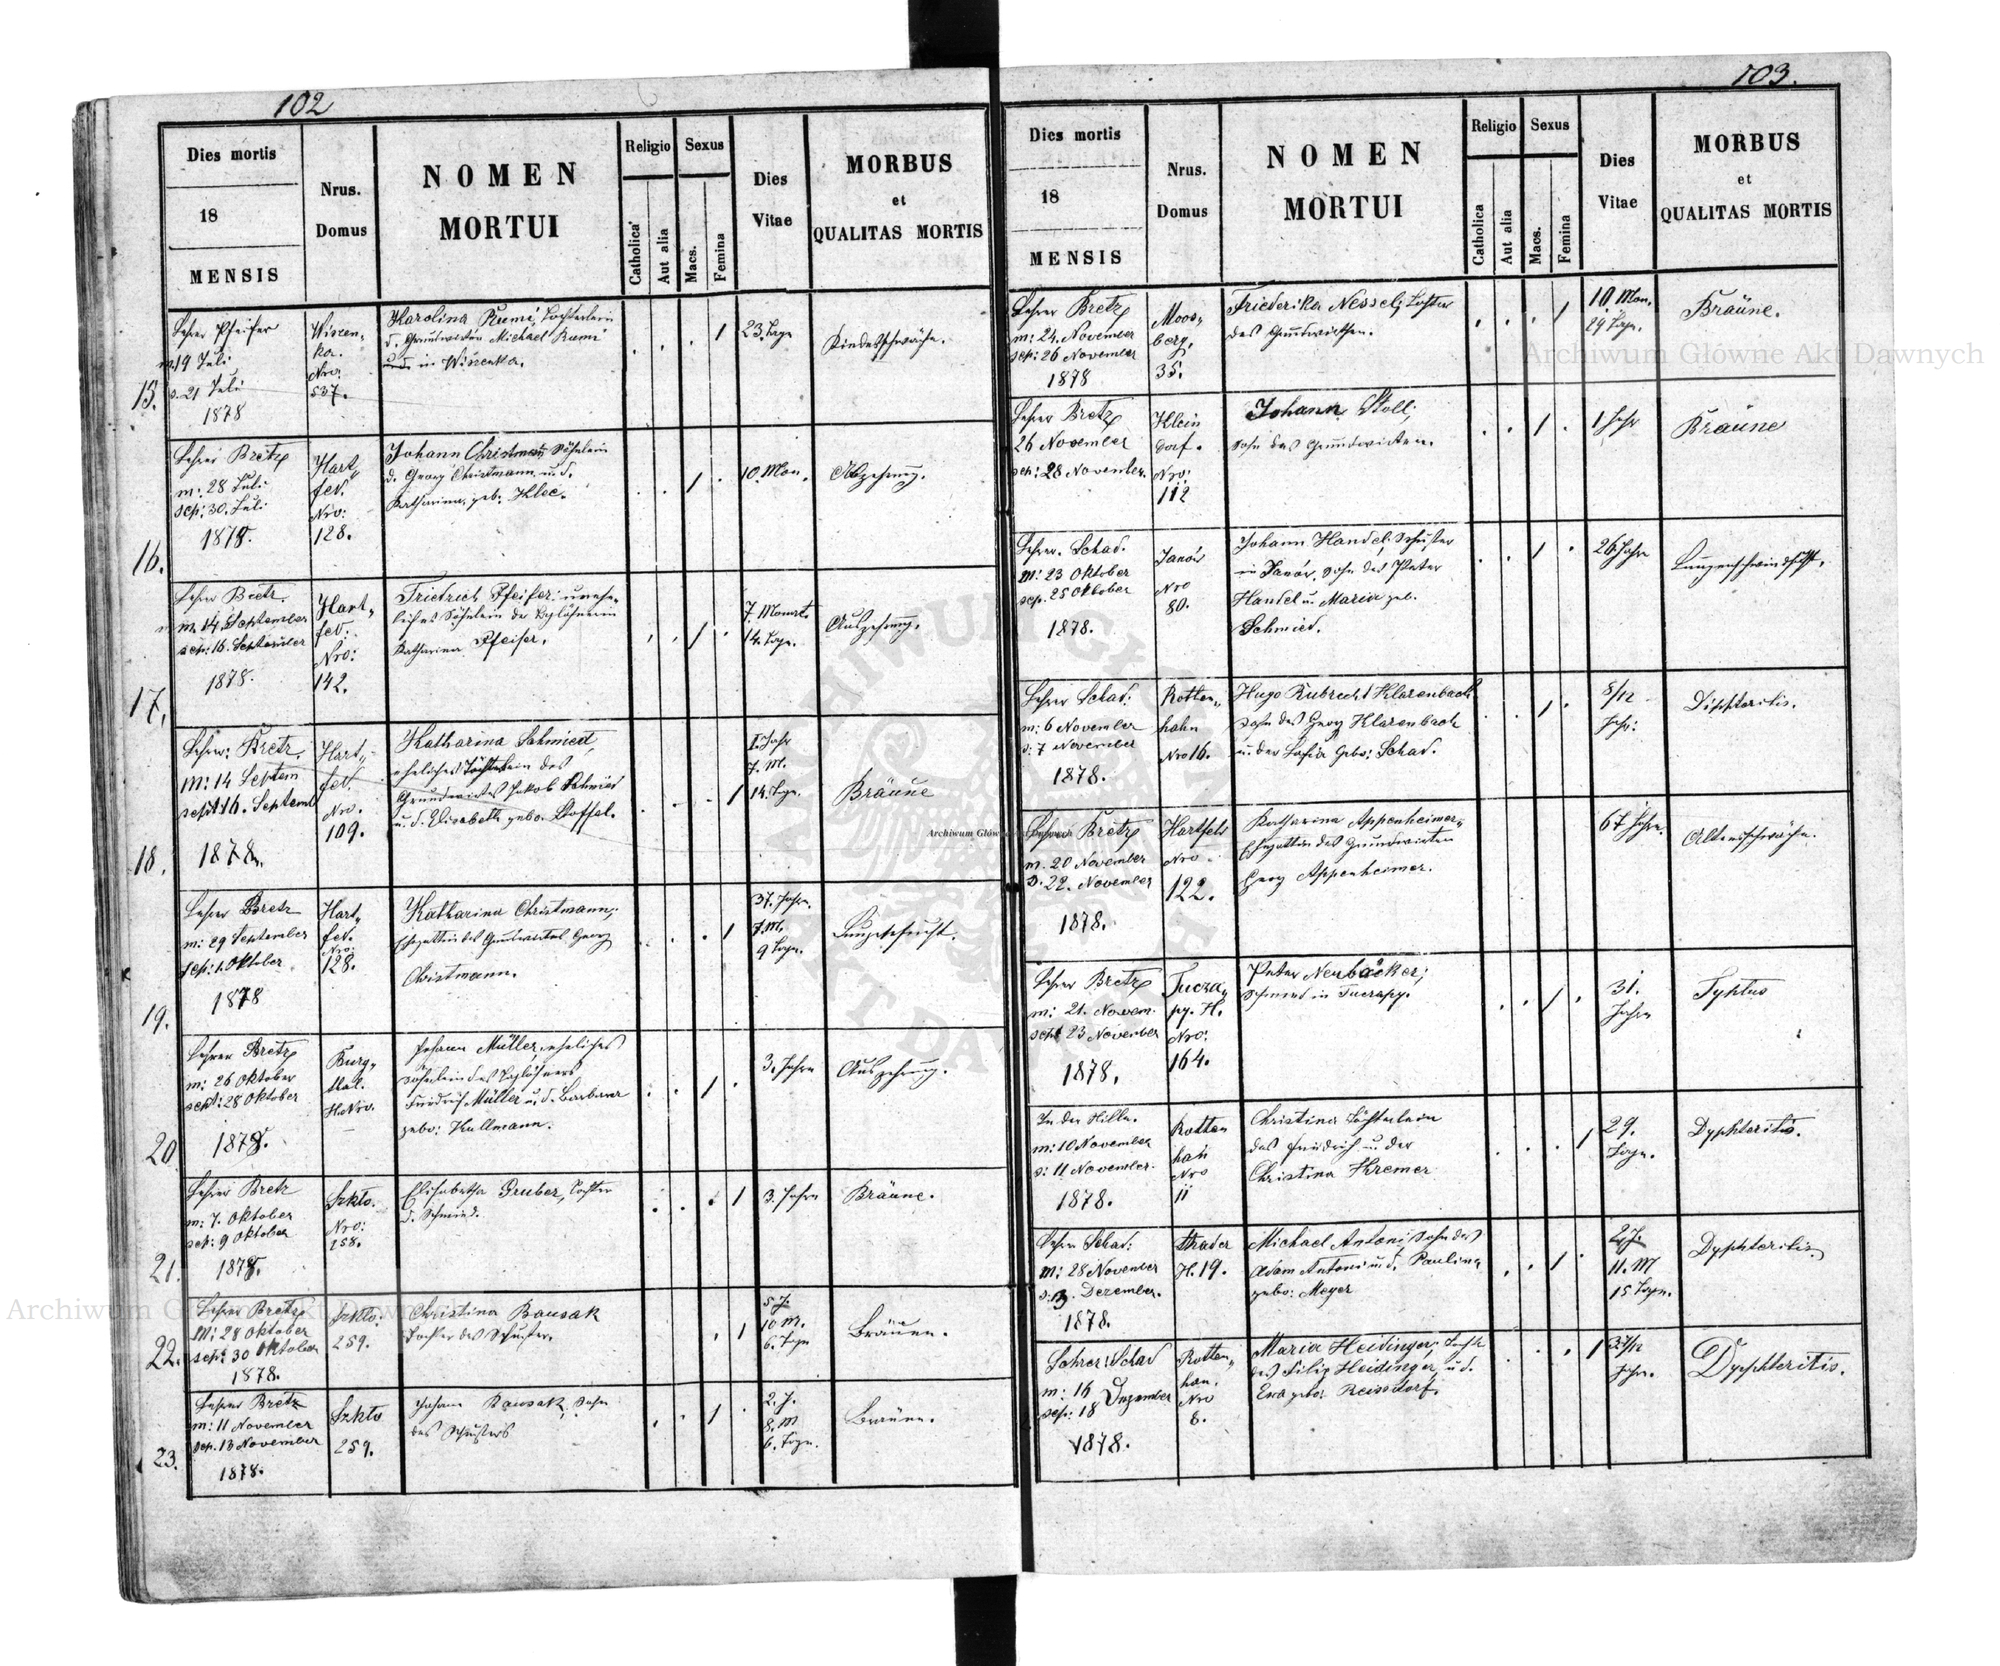 102
Dies mortis
18
MENSIS
Nrus.
Domus
NOMEN
MORTUI
Religio
Catholica
Aut alia
Sexus
Macs.
Femina
Dies
Vitae
MORBUS
et
QUALITAS MORTIS
15.
Lehrer Pfeifer
m. 19 Juli
s. 21 Juli
1878
Wiszen-
ka.
Nro:
537.
Karolina Rumi, Töchterlein
d. Grundwirten Michael Rumi
in Wiszenka.
23. Tage
Kindesschwäche.
16.
Lehrer Bretz
m: 28 Juli
sep: 30. Juli
1878.
Hart-
feld.
Nro:
128.
Johann Christmann Söhnlein
d. Georg Christmann u. d.
Katharina, geb. Klee.
10. Mon.
Abzehrung.
17.
Lehrer Bretz.
m. 14. September
sep: 16. September
1878.
Hart-
feld.
Nro:
142.
Friedrich Pfeifer: unehe-
liches Söhnlein der Taglöhnerin
Katharina Pfeifer.
7. Monat
14. Tage.
Auszehrung.
18.
Lehrer: Bretz
m: 14 Septem
sept 16. Septemb
1878.
Hart-
feld.
Nro.
109.
Katharina Schmied,
eheliches Töchterlein des
Grundwirtes Jakob Schmied
u. d. Elisabeth gebo. Stoffel.
1. Jahr
7. M.
14. Tage.
Bräune
19.
Lehrer Bretz
m: 29 September
sep: 1. Oktober
1878
Hart-
feld.
Nro:
128.
Katharina Christmann;
Ehegattin des Grundwirtes Georg
Christmann.
37. Jahre.
7. M.
9 Tage.
20
Lehrer Bretz
m: 26 Oktober
sept: 28 Oktober
1878.
Burg-
thal.
H. Nro.
Johann Müller, eheliches
Söhnlein des Taglöhners
Friedrich Müller u. d. Barbara
gebo: Kullmann.
3. Jahre
Auszehrung.
21.
Lehrer Bretz
m: 7. Oktober
sep: 9 Oktober
1878.
Szkto.
Nro:
258.
Elisabetha Gruber, Tochter
d. Schmied.
3. Jahre
Bräune.
22.
Lehrer Bretz
m: 28 Oktober
sept 30 Oktober
1878.
Szkto.
259.
Christina Bausak
Tochter des Schusters.
5 J.
10 M.
6. Tage
Bräune.
23.
Lehrer Bretz
m: 11 November
sep. 13 November
1878.
Szkto
259.
Johann Bausak, Sohn
des Schusters
2. J.
8. M
6. Tage.
Bräune.
103.
Dies mortis
18
MENSIS
Nrus.
Domus
NOMEN
MORTUI
Religio
Catholica
Aut alia
Sexus
Macs.
Femina
Dies
Vitae
MORBUS
et
QUALITAS MORTIS
Lehrer Bretz
m: 24. November
sep: 26 November
1878
Moos-
berg,
35.
Friederika Nessel; Tochter
des Grundwirthen.
10. Mon.
29 Tage.
Bräune.
Lehrer Bretz
26 November
sep: 28 November.
Klein
dorf.
Nro:
112
Johann Stoll;
Sohn des Grundwirten.
1 Jahr
Bräune
Lehrer. Schad.
m: 23 Oktober
sep. 25 Oktober
1878.
Janów
Nro
80.
Johann Handel; Schuster
in Janów, Sohn des Peter
Handel u. Maria geb.
Schmied.
26 Jahre
Lungenschwindsucht.
Lehrer Schad.
m: 6 November
s: 7 November
1878.
Rotten-
hahn
Nro 16.
Hugo Rubrecht Klarenbach
Sohn des Georg Klarenbach
u. der Sofia Gebo: Schad.
8/12
Jahr:
Diphteritis.
Lehrer Bretz
m. 20 November
s. 22. November
1878.
Hartfeld
Nro.
122.
Katharina Appenheimer,
Ehegattin des Grundwirten
Georg Appenheimer.
67 Jahre.
Altersschwäche.
Lehrer Bretz
m: 21. Novem.
sept 23 November
1878.
Tucza-
py. H.
Nro:
164.
Peter Neubäcker;
Schmied in Tuczapy.
31.
Jahre
Typhus
In der Hille.
m: 10 November
s: 11 November.
1878.
Rotten
han
Nro
11
Christina Töchterlein
des Friedrich u. der
Christina Kremer
29.
Tage.
Dyphteritis.
Lehrer Schad:
m: 28 November
s: 3. Dezember.
1878.
Strader
H. 19.
Michael Antoni, Sohn des
Adam Antoni u. d. Paulina
gebo: Meyer
2 J.
11. M
15 Tage.
Dyphteritis.
Lehrer: Schad
m: 16
Dezember
sep: 18
1878.
Rotten-
han.
Nro
8.
Maria Heidinger; Tocht
des Filip Heidinger, u. d.
Eva gebo: Reissdorf.
Jahre.
Dyphteritis.
Archiwum Główne Akt Dawnych
Archiwum Główne Akt Dawnych
Archiwum Główne Akt Dawnych